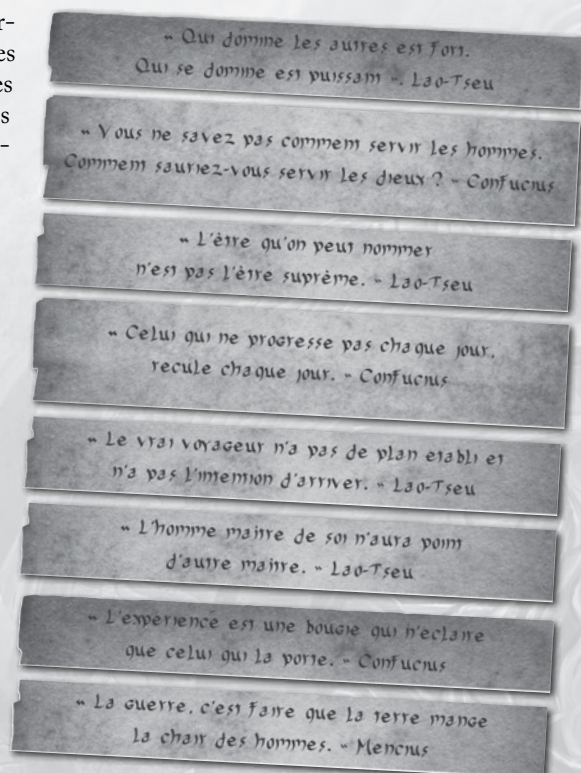 r-
es
es
s
-
" Qui domine les autres est fort.
Qui se domine est puissant ". Lao-Tseu
" Vous ne savez pas comment servir les hommes.
Comment sauriez-vous servir les dieux ? " Confucius
" L'être qu'on peut nommer
n'est pas l'être suprême. " Lao-Tseu
" Celui qui ne progresse pas chaque jour,
recule chaque jour. " Confucius
" Le vrai voyageur n'a pas de plan établi et
n'a pas l'intention d'arriver. " Lao-Tseu
" L'homme maître de soi n'aura point
d'autre maître. " Lao-Tseu
" L'expérience est une bougie qui n'éclaire
que celui qui la porte. " Confucius
" La guerre, c'est faire que la terre mange
la chair des hommes. " Mencius